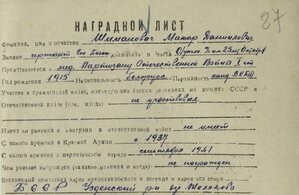 87
НАГРАДНОЙ ЛИСТ
Фамилия, имя и отчество Шиманович Макар
Звание сержант
Представляется к мед. Партизану Отечественной Войны I ст
Год рождения 1915 Национальность Белорус Партийность канд. ВКП(б)
Участие в гражданской войне, последующих боевых действиях по защите СССР и
Отечественной войне (где, когда) не участвовал
Имеет ли ранения и контузии в отечественной войне не имеет
С какого времени в Красной Армии с 1937
С какого времени в партизанском отряде сентября 1941
Чем ранее награжден не награжден
Постоянный домашний адрес представляемого к награде и адрес его семьи
БССР Узденский р-н